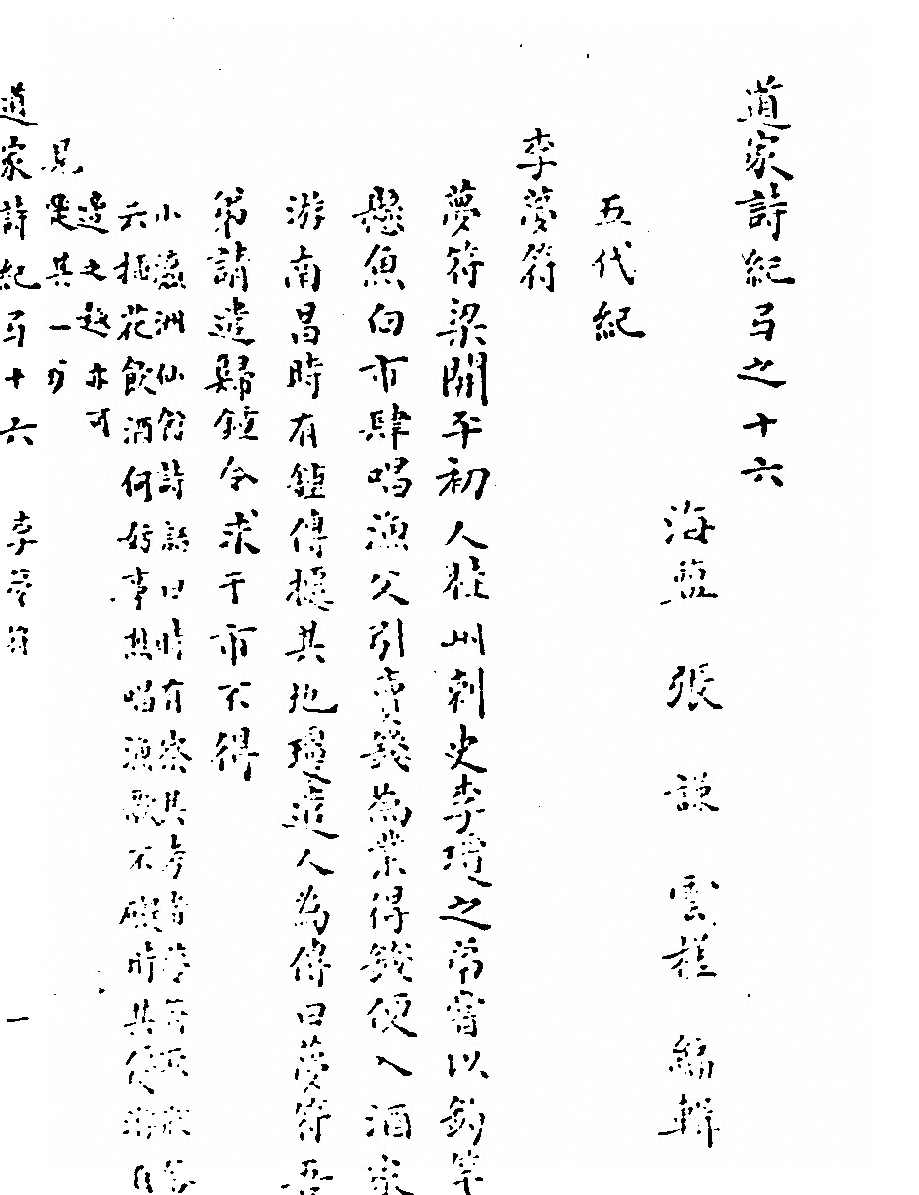 道家詩紀弓之十六
海鹽 張 謙 雲槎 編輯
五代紀
李夢符
夢符梁開平初人桂州刺史李瓊之弟嘗以釣竿
懸魚向市肆唱漁父引賣其為業得錢便入酒家
游南昌時有鍾傳據其地瓊遣人為傳曰夢符吾
弟請遣歸鍾令求于市不得
小瀛洲仙館詩話曰時有察其者夢符
云插花飲酒何妨事樵唱漁歌不礙時其
逸之趣亦可
見是其一
道家詩紀弓十六 李夢符 一